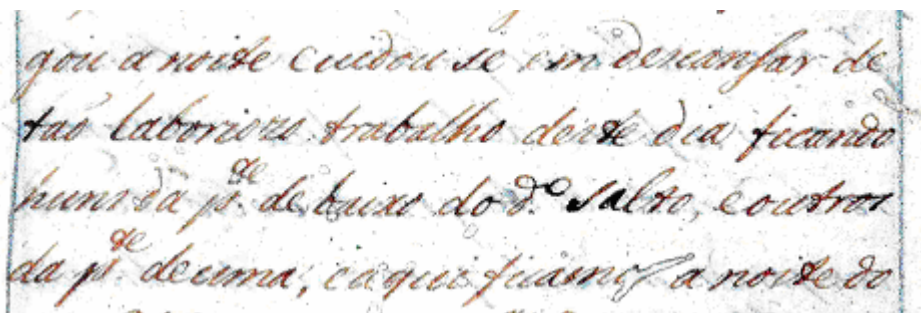 gou a noite cuidou se em descansar de
tao laborioso trabalho deste dia ficando
huns da p.te de baixo do d.o Salto, e outros
da p.te de cima, e aqui ficámos a noite do